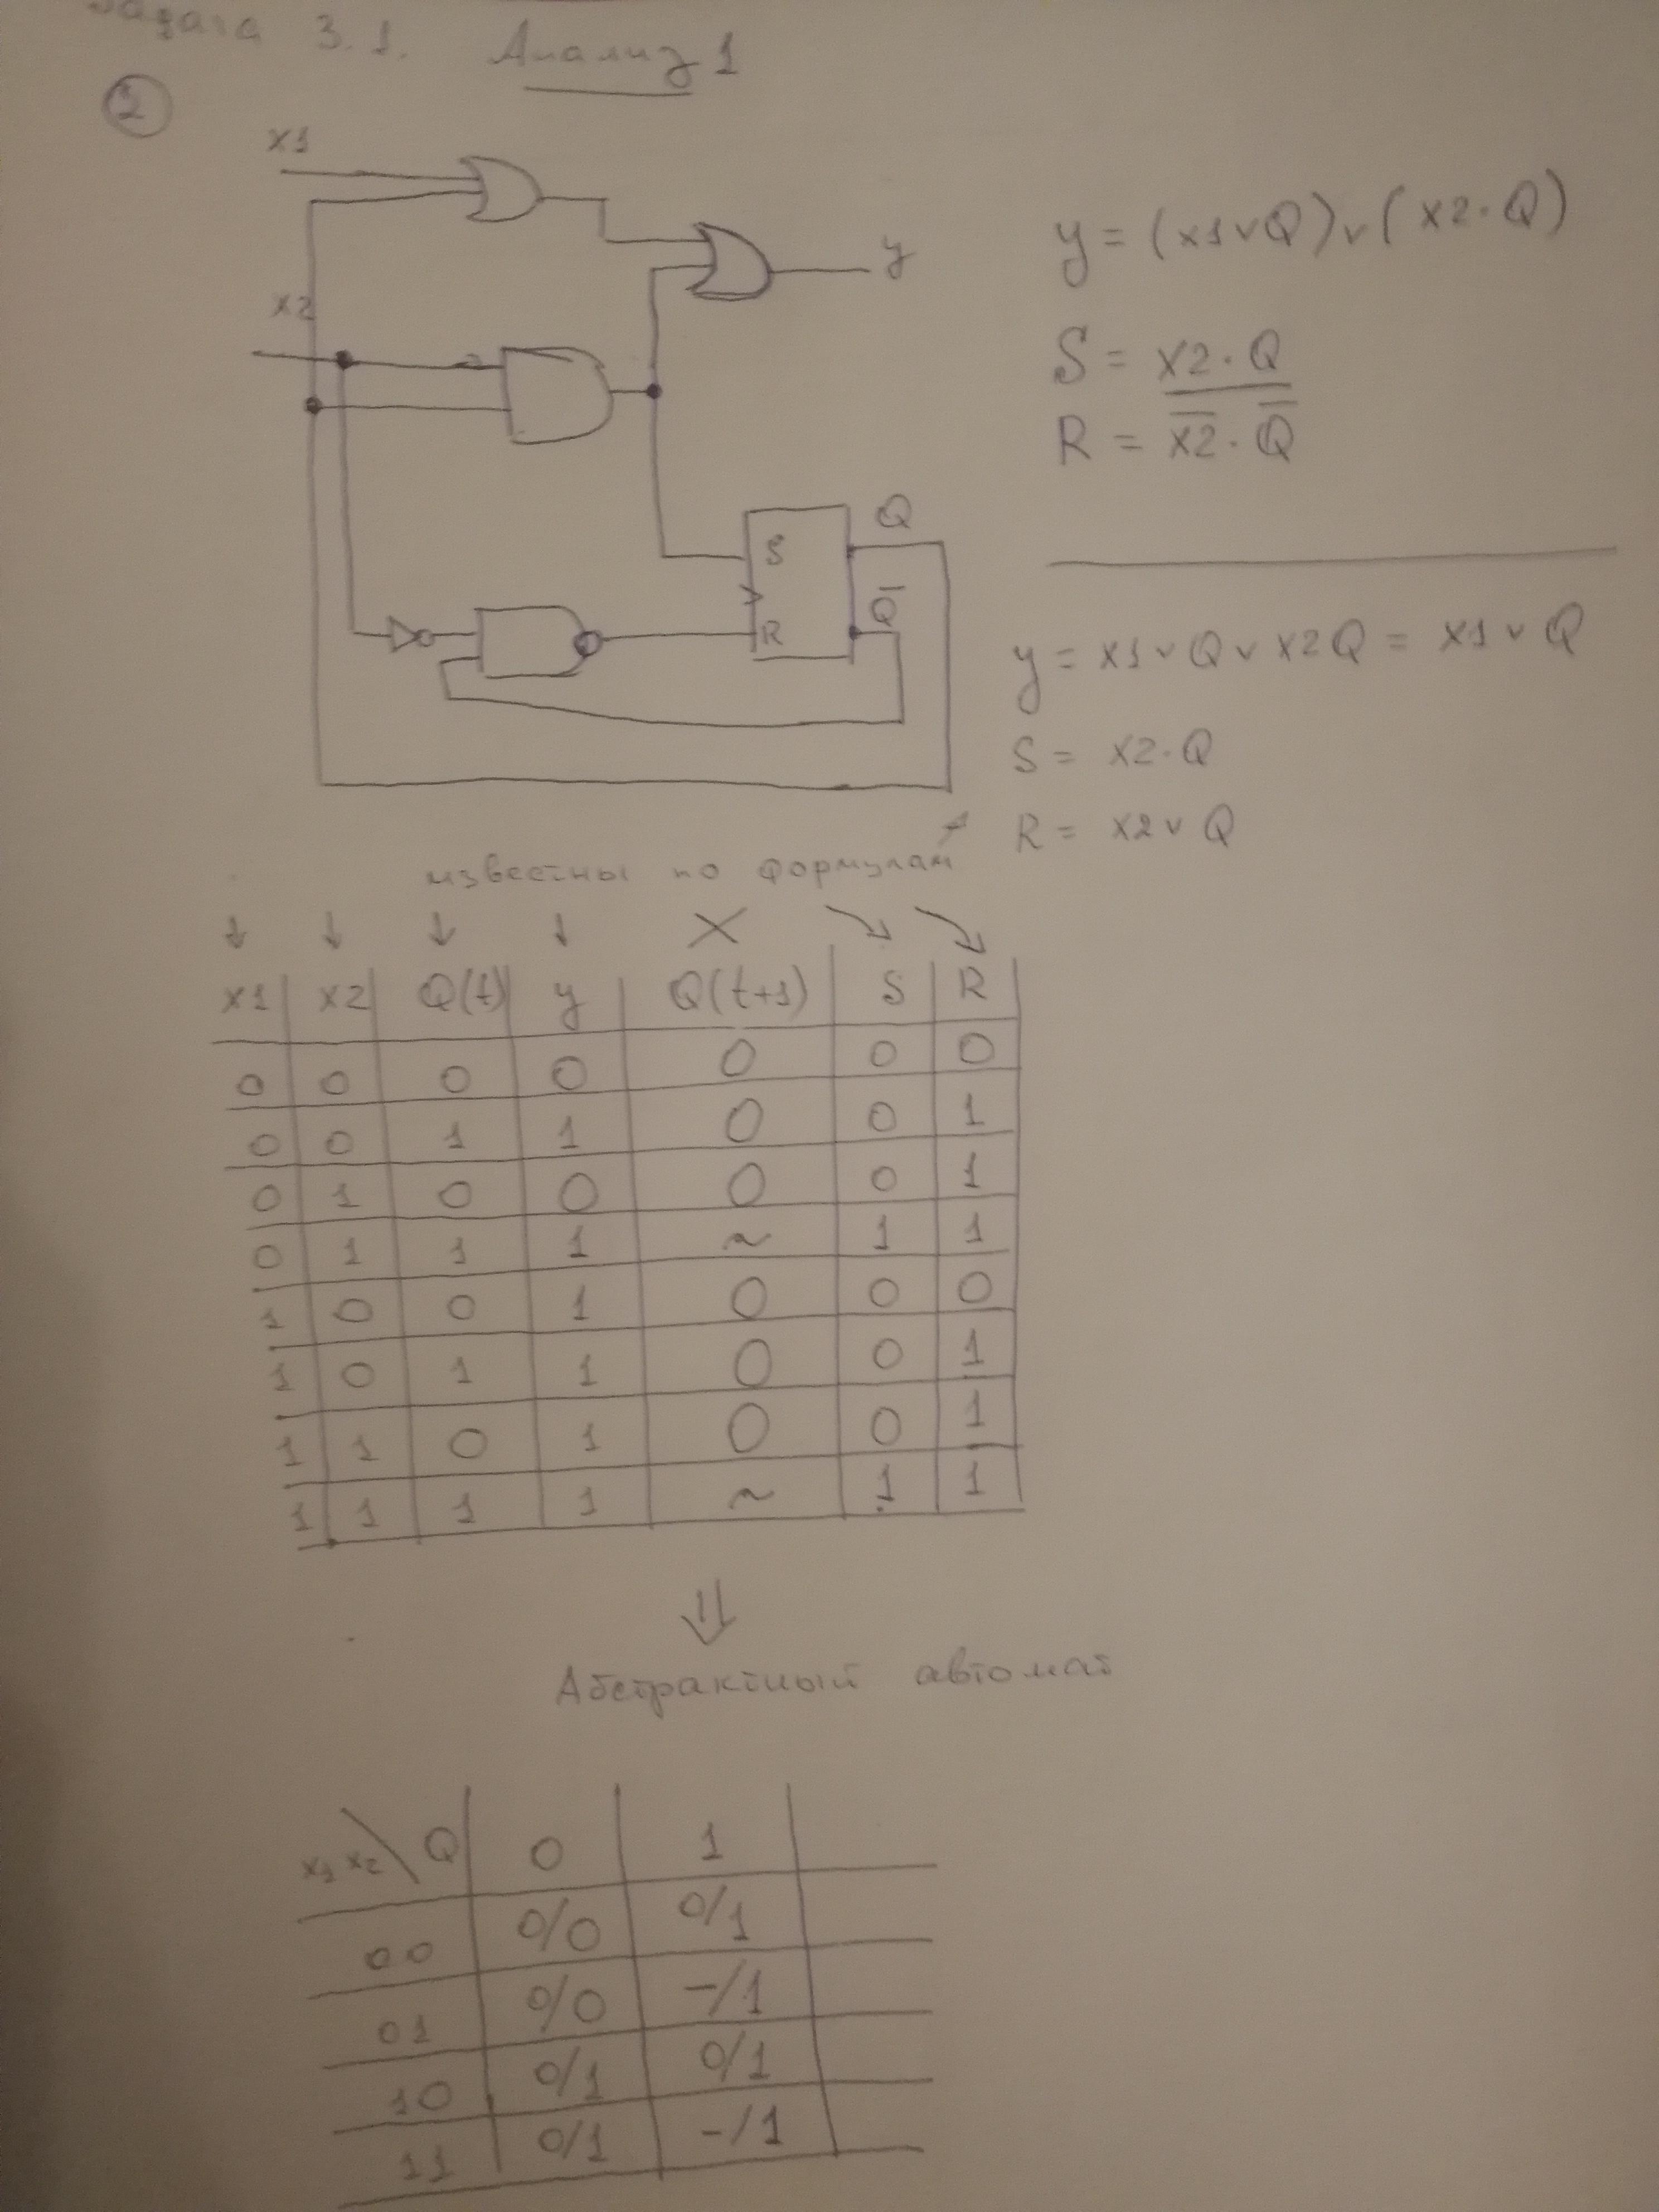 Задача 3.1. Анализ 1
2
x1
x2
y
S
R
Q
Q̅
y = (x1 ∨ Q) ∨ (x2 · Q)
S = x2 · Q
R = \overline{\overline{x2} · \overline{Q}}
y = x1 ∨ Q ∨ x2Q = x1 ∨ Q
S = x2 · Q
R = x2 ∨ Q
известны по формулам
↓ ↓ ↓ ↓ X ↘ ↘
x1 x2 Q(t) y Q(t+1) S R
0 0 0 0 0 0 0
0 0 1 1 0 0 1
0 1 0 0 0 0 1
0 1 1 1 ~ 1 1
1 0 0 1 0 0 0
1 0 1 1 0 0 1
1 1 0 1 0 0 1
1 1 1 1 ~ 1 1
⇓
Абстрактный автомат
x1 x2 \ Q 0 1
00 0/0 0/1
01 0/0 -/1
10 0/1 0/1
11 0/1 -/1